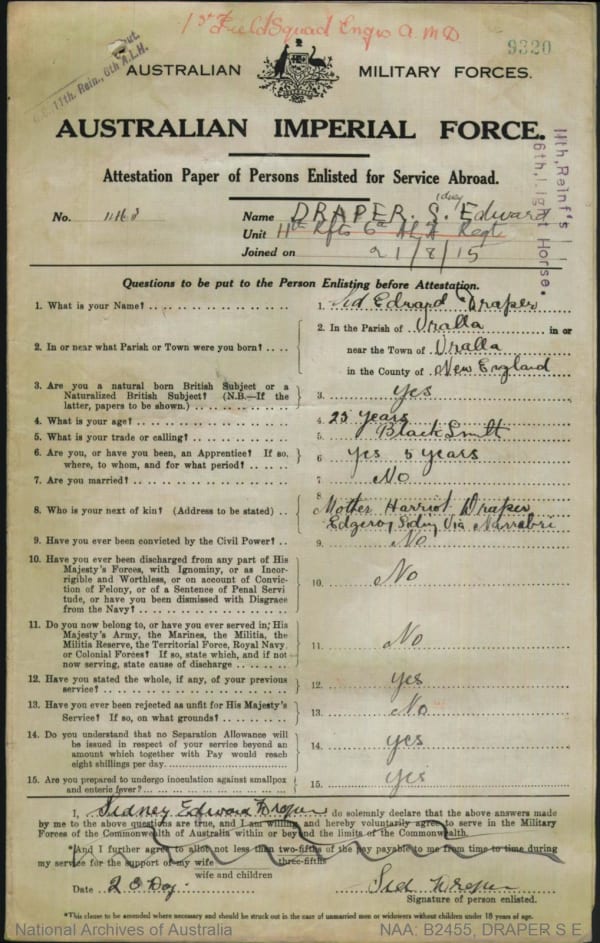 1st Field Squad Engrs A.M.D.
9320
11th. Rein., 6th A.L.H.
AUSTRALIAN MILITARY FORCES.
AUSTRALIAN IMPERIAL FORCE.
11th, Reinf's
6th, Light Horse.
Attestation Paper of Persons Enlisted for Service Abroad.
No. 1163 Name DRAPER. Sidney Edward
Unit 11th Rfts 6th ALH Regt
Joined on 21/8/15
Questions to be put to the Person Enlisting before Attestation.
1. What is your Name? 1. Sid Edward Draper
2. In or near what Parish or Town were you born? 2. In the Parish of Uralla in or
near the Town of Uralla
in the County of New England
3. Are you a natural born British Subject or a
Naturalized British Subject? (N.B.—If the
latter, papers to be shown.) 3. yes
4. What is your age? 4. 25 years
5. What is your trade or calling? 5. Black Smith
6. Are you, or have you been, an Apprentice? If so,
where, to whom, and for what period? 6 yes 5 years
7. Are you married? 7 No
8. Who is your next of kin? (Address to be stated) 8 Mother Harriot Draper
Edgeroy Siding Via Narrabri
9. Have you ever been convicted by the Civil Power? 9. No
10. Have you ever been discharged from any part of His
Majesty's Forces, with Ignominy, or as Incor-
rigible and Worthless, or on account of Convic-
tion of Felony, or of a Sentence of Penal Servi
tude, or have you been dismissed with Disgrace
from the Navy? 10. No
11. Do you now belong to, or have you ever served in, His
Majesty's Army, the Marines, the Militia, the
Militia Reserve, the Territorial Force, Royal Navy
or Colonial Forces? If so, state which, and if not
now serving, state cause of discharge 11. No
12. Have you stated the whole, if any, of your previous
service? 12. yes
13. Have you ever been rejected as unfit for His Majesty's
Service? If so, on what grounds? 13. No
14. Do you understand that no Separation Allowance will
be issued in respect of your service beyond an
amount which together with Pay would reach
eight shillings per day. 14. yes
15. Are you prepared to undergo inoculation against smallpox
and enteric fever? 15. yes
I, Sidney Edward Draper do solemnly declare that the above answers made
by me to the above questions are true, and I am willing and hereby voluntarily agree to serve in the Military
Forces of the Commonwealth of Australia within or beyond the limits of the Commonwealth.
*And I further agree to allot not less than two-fifths of the pay payable to me from time to time during
three-fifths
my service for the support of my wife
wife and children
Date Sid Draper
Signature of person enlisted.
*This clause to be amended where necessary and should be struck out in the case of unmarried men or widowers without children under 18 years of age.
National Archives of Australia NAA: B2455, DRAPER S E